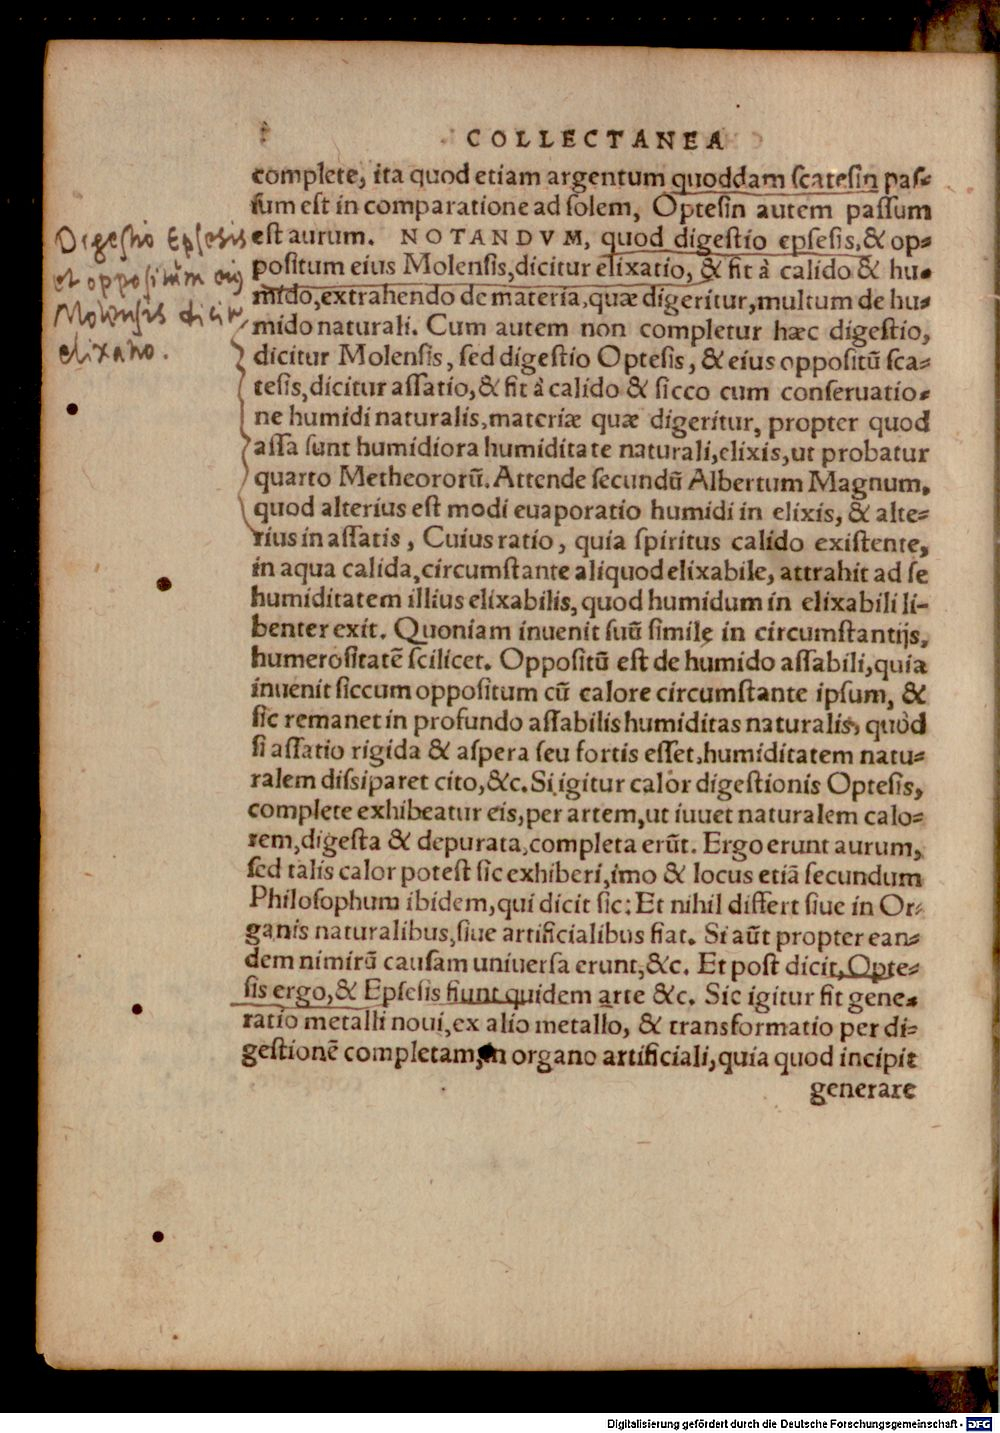 COLLECTANEA
complete, ita quod etiam argentum quoddam scatesin pas-
sum est in comparatione ad solem, Optesin autem passum
est aurum. NOTANDVM, quod digestio epsesis, & op-
positum eius Molensis, dicitur elixatio, & fit à calido & hu-
mido, extrahendo de materia, quæ digeritur, multum de hu-
mido naturali. Cum autem non completur hæc digestio,
dicitur Molensis, sed digestio Optesis, & eius oppositū sca-
tesis, dicitur assatio, & fit à calido & sicco cum conseruatio-
ne humidi naturalis, materiæ quæ digeritur, propter quod
assa sunt humidiora humiditate naturali, elixis, ut probatur
quarto Metheororū. Attende secundū Albertum Magnum,
quod alterius est modi euaporatio humidi in elixis, & alte-
rius in assatis, Cuius ratio, quia spiritus calido existente,
in aqua calida, circumstante aliquod elixabile, attrahit ad se
humiditatem illius elixabilis, quod humidum in elixabili li-
benter exit. Quoniam inuenit suū simile in circumstantijs,
humerositatē scilicet. Oppositū est de humido assabili, quia
inuenit siccum oppositum cū calore circumstante ipsum, &
sic remanet in profundo assabilis humiditas naturalis, quòd
si assatio rigida & aspera seu fortis esset, humiditatem natu-
ralem dissiparet cito, &c. Si igitur calor digestionis Optesis,
complete exhibeatur eis, per artem, ut iuuet naturalem calo-
rem, digesta & depurata, completa erūt. Ergo erunt aurum,
sed talis calor potest sic exhiberi, imo & locus etiā secundum
Philosophum ibidem, qui dicit sic: Et nihil differt siue in Or-
ganis naturalibus, siue artificialibus fiat. Si aūt propter ean-
dem nimirū causam uniuersa erunt, &c. Et post dicit, Opte-
sis ergo, & Epsesis fiunt quidem arte &c. Sic igitur fit gene-
ratio metalli noui, ex alio metallo, & transformatio per di-
gestionē completam, in organo artificiali, quia quod incipit
generare
Digestio Epsesis
et oppositum eius
Molensis dicitur
elixatio.
Digitalisierung gefördert durch die Deutsche Forschungsgemeinschaft - DFG